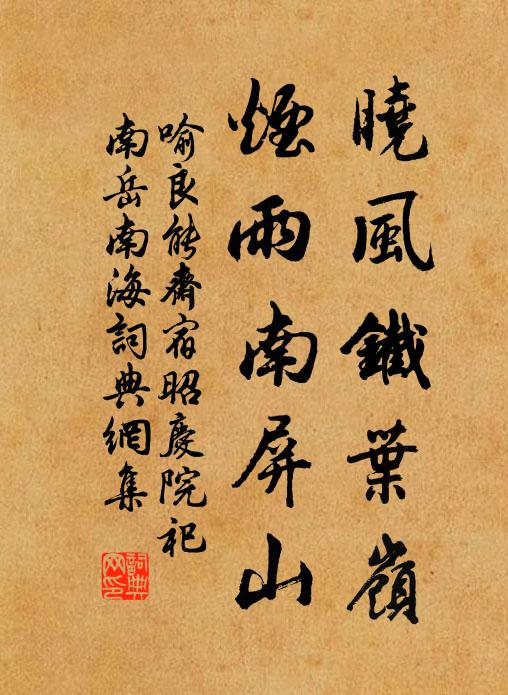 曉風鐵葉嶺
煙雨南屏山
喻良能齋宿昭慶院祀
南岳南海詞典網集
詞典网印